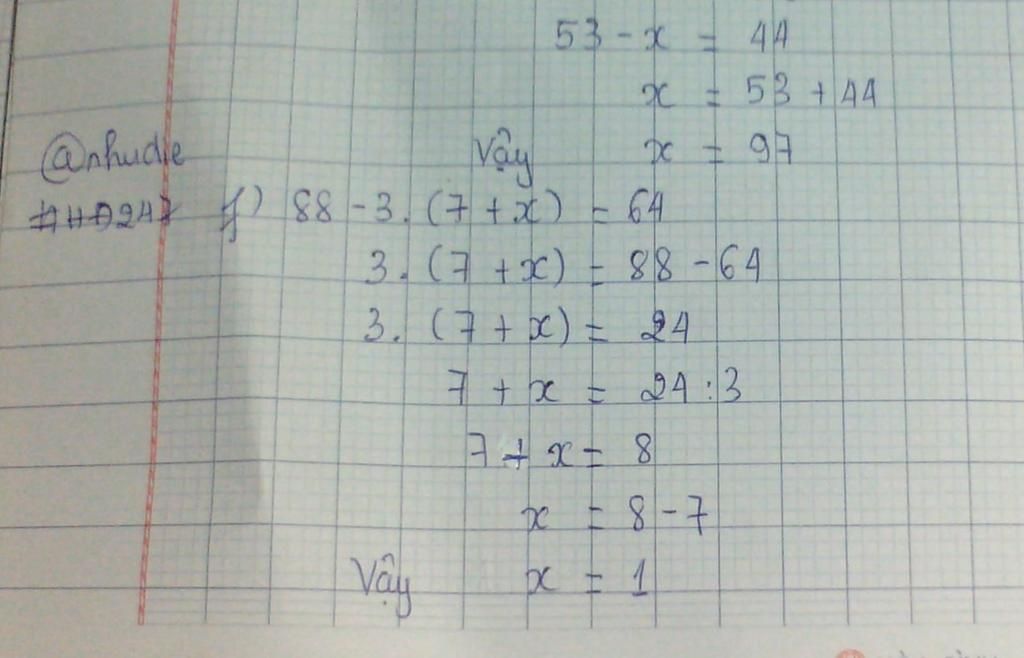 53 - x = 44
x = 53 + 44
Vậy x = 97
f) 88 - 3. (7 + x) = 64
3. (7 + x) = 88 - 64
3. (7 + x) = 24
7 + x = 24 : 3
7 + x = 8
x = 8 - 7
Vậy x = 1